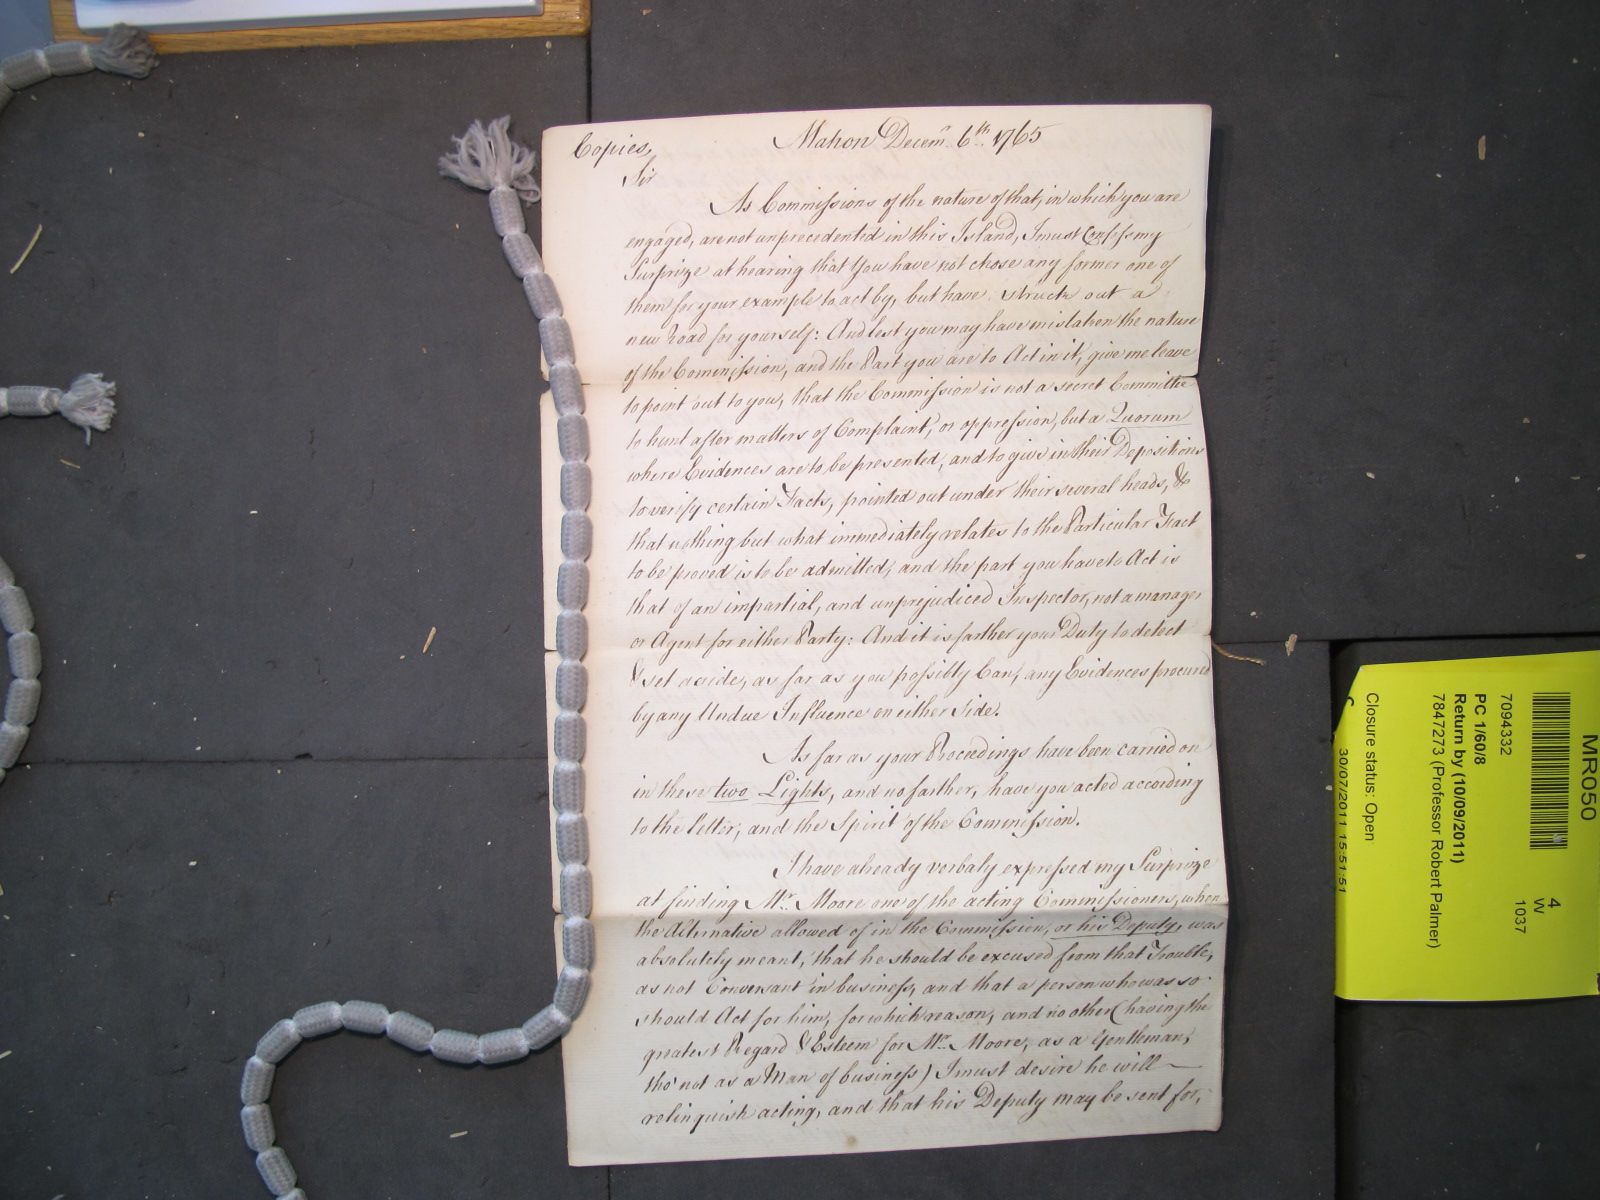 Copies,
Mahon Decemr. 6th. 1765
Sir
As Commissions of the nature of that, in which you are
engaged, are not unprecedented in this Island, I must Confess my
Surprize at hearing that You have not chose any former one of
them for your example to act by, but have struck out a
new Road for yourself: And lest you may have mistaken the nature
of the Commission, and the Part you are to Act in it, give me leave
to point out to you, that the Commission is not a secret Committee
to hunt after matters of Complaint, or oppression, but a Quorum
where Evidences are to be presented, and to give in their Depositions
to verify certain Facts, pointed out under their several heads, &
that nothing but what immediately relates to the Particular Fact
to be proved is to be admitted, and the part you have to Act is
that of an impartial, and unprejudiced Inspector, not a manager
or Agent for either Party: And it is farther your Duty to detect
& set aside, as far as you possibly Can, any Evidences procured
by any Undue Influence on either Side.
As far as your Proceedings have been carried on
in these two Lights, and no farther, have you acted according
to the letter, and the Spirit of the Commission.
I have already verbaly expressed my Surprize
at finding Mr. Moore one of the acting Commissioners, when
the Alternative allowed of in the Commission, or his Deputy, was
absolutely meant, that he should be excused from that Trouble,
as not Conversant in business, and that a person who was so
should Act for him, for which reason, and no other (having the
greatest Regard & Esteem for Mr. Moore, as a Gentleman,
tho' not as a Man of business) I must desire he will
relinquish acting, and that his Deputy may be sent for,
MR050
7094332
PC 1/60/8
Return by (10/09/2011)
7847273 (Professor Robert Palmer)
Closure status: Open
30/07/2011 15:51:51
4
W
1037